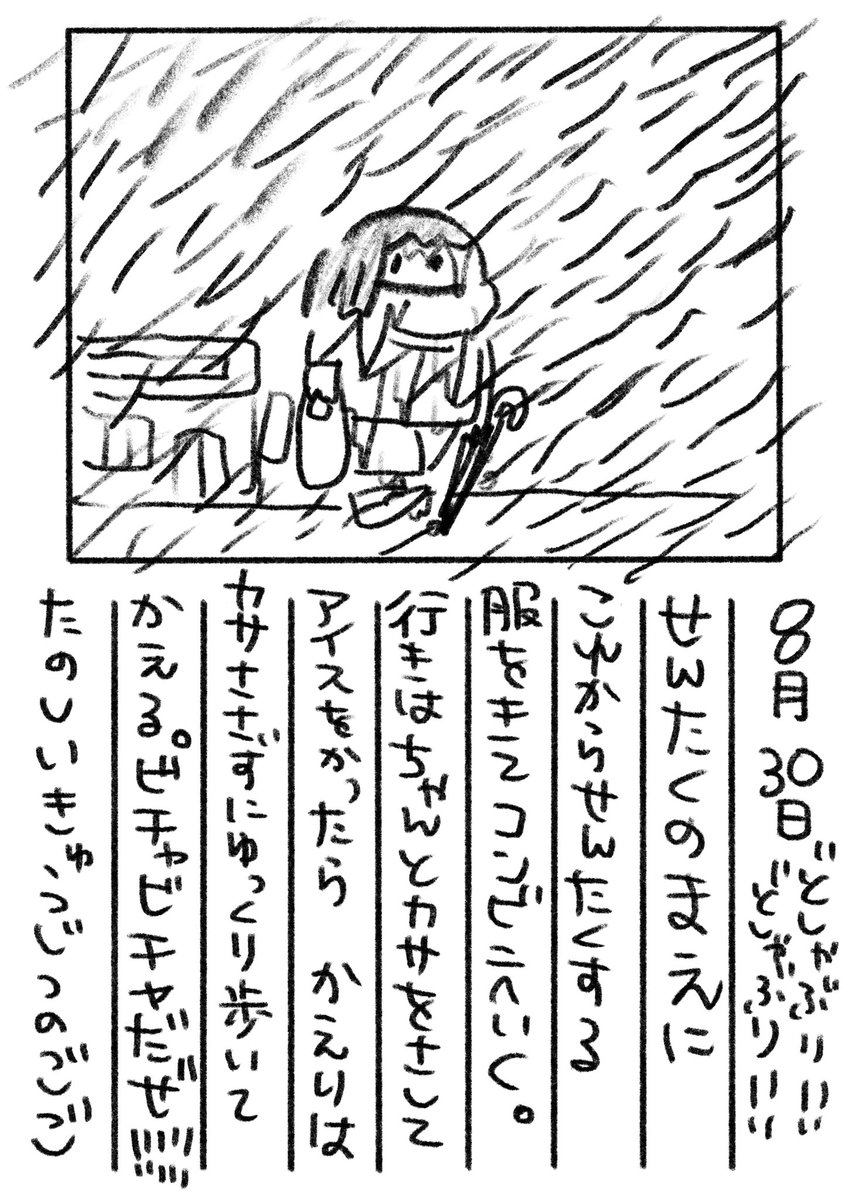 8月30日 どしゃぶり!! どしゃぶり!!
せんたくのまえに
これからせんたくする
服をきてコンビニへいく。
行きはちゃんとカサをさして
アイスをかったら かえりは
カサささずにゆっくり歩いて
かえる。ビチャビチャだぜ!!!!!
たのしいきゅうじつのごご